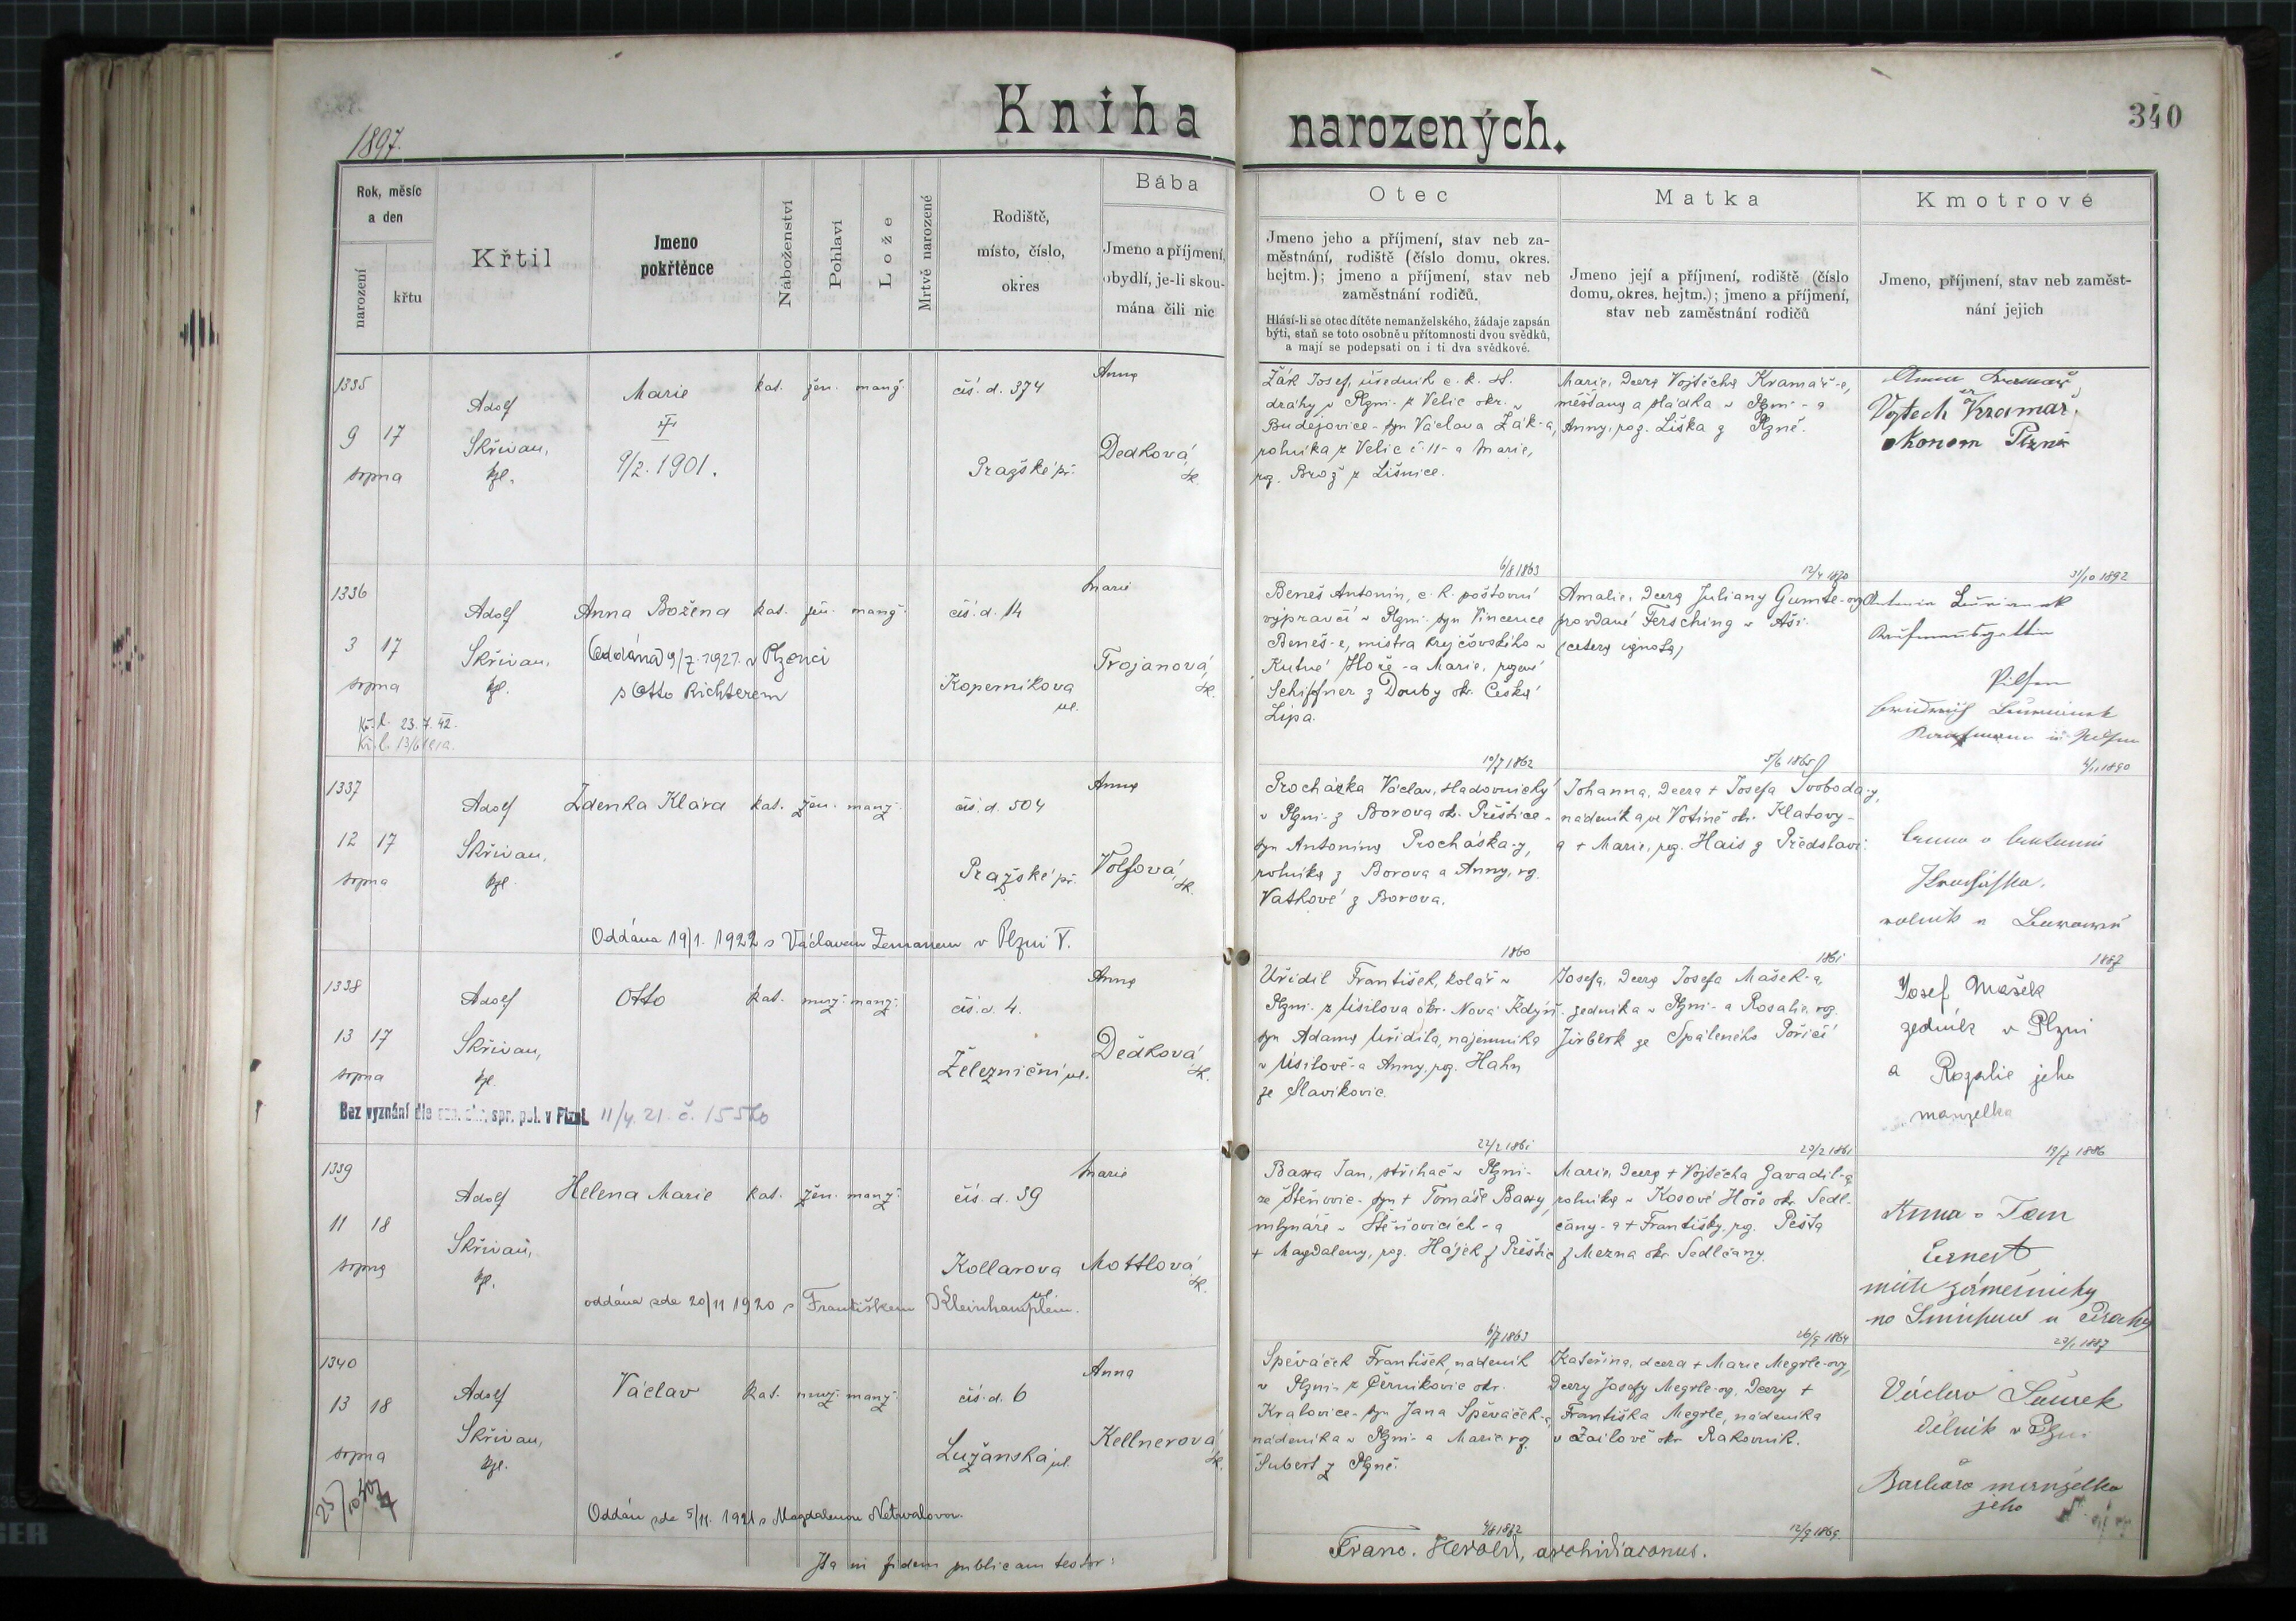 Kniha narozených.
340
1897.
Rok, měsíc
a den
narození
křtu
Křtil
Jmeno
pokřtěnce
Náboženství
Pohlaví
Lože
Mrtvě narozené
Rodiště,
místo, číslo,
okres
Bába
Jmeno a příjmení,
obydlí, je-li skou-
mána čili nic
Otec
Jmeno jeho a příjmení, stav neb za-
městnání, rodiště (číslo domu, okres.
hejtm.); jmeno a příjmení, stav neb
zaměstnání rodičů.
Hlásí-li se otec dítěte nemanželského, žádaje zapsán
býti, staň se toto osobně u přítomnosti dvou svědků,
a mají se podepsati on i ti dva svědkové.
Matka
Jmeno její a příjmení, rodiště (číslo
domu, okres. hejtm.); jmeno a příjmení,
stav neb zaměstnání rodičů
Kmotrové
Jmeno, příjmení, stav neb zaměst-
nání jejich
1335
9 17
srpna
Adolf
Skřivan,
kpl.
Marie
9/2. 1901.
kat. žen. manž.
čís. d. 374
Pražské př.
Anna
Dedková
zk.
Žák Josef, úředník c. k. st.
dráhy v Plzni - z Velic okr.
Budějovice - syn Václava Žák-a,
rolníka z Velic č. 11 - a Marie,
roz. Brož z Lišnice.
Marie, dcera Vojtěcha Kramář-e,
měšťana a sládka v Plzni - a
Anny, roz. Liška z Plzně.
Anna Kramář
Vojtech Kramař.
okonom Plzni
6/8 1863
12/4 1870
31/10 1892
1336
3 17
srpna
Kř. l. 23. 7. 42.
Kř. l. 13/6
Adolf
Skřivan,
kpl.
Anna Božena
(Oddána) 9/7. 1921. v Plzenci
s Otto Richterem
kat. žen. manž.
čís. d. 14
Koperníkova
ul.
Marie
Trojanová,
zk.
Beneš Antonín, c. k. poštovní
výpravčí v Plzni - syn Vincence
Beneš-e, mistra krejčovského v
Kutné Hoře - a Marie, rozené
Schiffner z Douby okr. Česká
Lípa.
Amalie, dcera Juliany Gumte-ovy
provdané Fersching v Aši.
(cetera ignota)
Pilsen
10/7 1862
5/6 1865
4/11 1890
1337
12 17
srpna
Adolf
Skřivan,
kpl.
Zdenka Klára
kat. žen. manž.
čís. d. 504
Pražské př.
Anna
Volfová,
zk.
Oddána 19/1. 1922 s Václavem Zemanem v Plzni V.
Procházka Václav, sladovnický
v Plzni - z Borova okr. Přeštice -
syn Antonína Procházka-y,
rolníka z Borova a Anny, roz.
Vaškové z Borova.
Johanna, dcera + Josefa Svoboda-y,
nádeníka ve Votíně okr. Klatovy -
a + Marie, roz. Hais z Předslavi.
Procháska,
rolník
1860
1861
1887
1338
13 17
srpna
Adolf
Skřivan,
kpl.
Otto
kat. muž. manž.
čís. d. 4.
Železniční ul.
Anna
Dedková
zk.
Bez vyznání dle spr. pol. v Plzni. 11/4. 21. č. 15520
Uřidil František, kolář v
Plzni - z Úsilova okr. Nová Kdyň -
syn Adama Uřidila, nájemníka
v Úsilově - a Anny, roz. Hahn
ze Slavíkovic.
Josefa, dcera Josefa Mašek-a,
zedníka v Plzni - a Rosalie, roz.
Jirberk ze Spáleného Poříčí
Josef Mašek
zedník v Plzni
a Rozalie jeho
manzelka
22/2 1861
23/2 1861
19/7 1886
1339
11 18
srpna
Adolf
Skřivan,
kpl.
Helena Marie
kat. žen. manž.
čís. d. 39
Kollarova
ul.
Marie
Mottlová
zk.
oddána zde 20/11 1920 s Františkem Kleinhamplem.
Bawa Jan, střihač v Plzni -
ze Štěnovic - syn + Tomáše Bawy,
mlynáře v Štěnovicích - a
+ Magdaleny, roz. Hájek z Přeštic
Marie, dcera + Vojtěcha Zavadil-a,
rolníka v Kosově Hoře okr. Sedl-
čany - a + Františky, roz. Pešta
z Mezna okr. Sedlčany.
Anna a Tom
Ernest
mistr zámečnický
na Smichově u Prahy
6/7 1863
26/9 1864
23/1 1887
1340
13 18
srpna
Adolf
Skřivan,
kpl.
Václav
kat. muž. manž.
čís. d. 6
Lužanská ul.
Anna
Kellnerová
zk.
Oddán zde 5/11. 1921 s Magdalenou Netvalovou.
Spěváček František, nádeník
v Plzni - z Černíkovic okr.
Kralovice - syn Jana Spěváček-a,
nádeníka v Plzni - a Marie roz.
Šubert z Plzně.
Kateřina, dcera + Marie Megrle-ovy,
dcery Josefy Megrle-ovy, dcery +
Františka Megrle, nádeníka
v Žailově okr. Rakovník.
Václav
dělník v Plzni
Barbara manželka
jeho
4/8 1872
12/9 1869
Ita in fidem publicam testor:
Franc. Herold, archidiaconus.